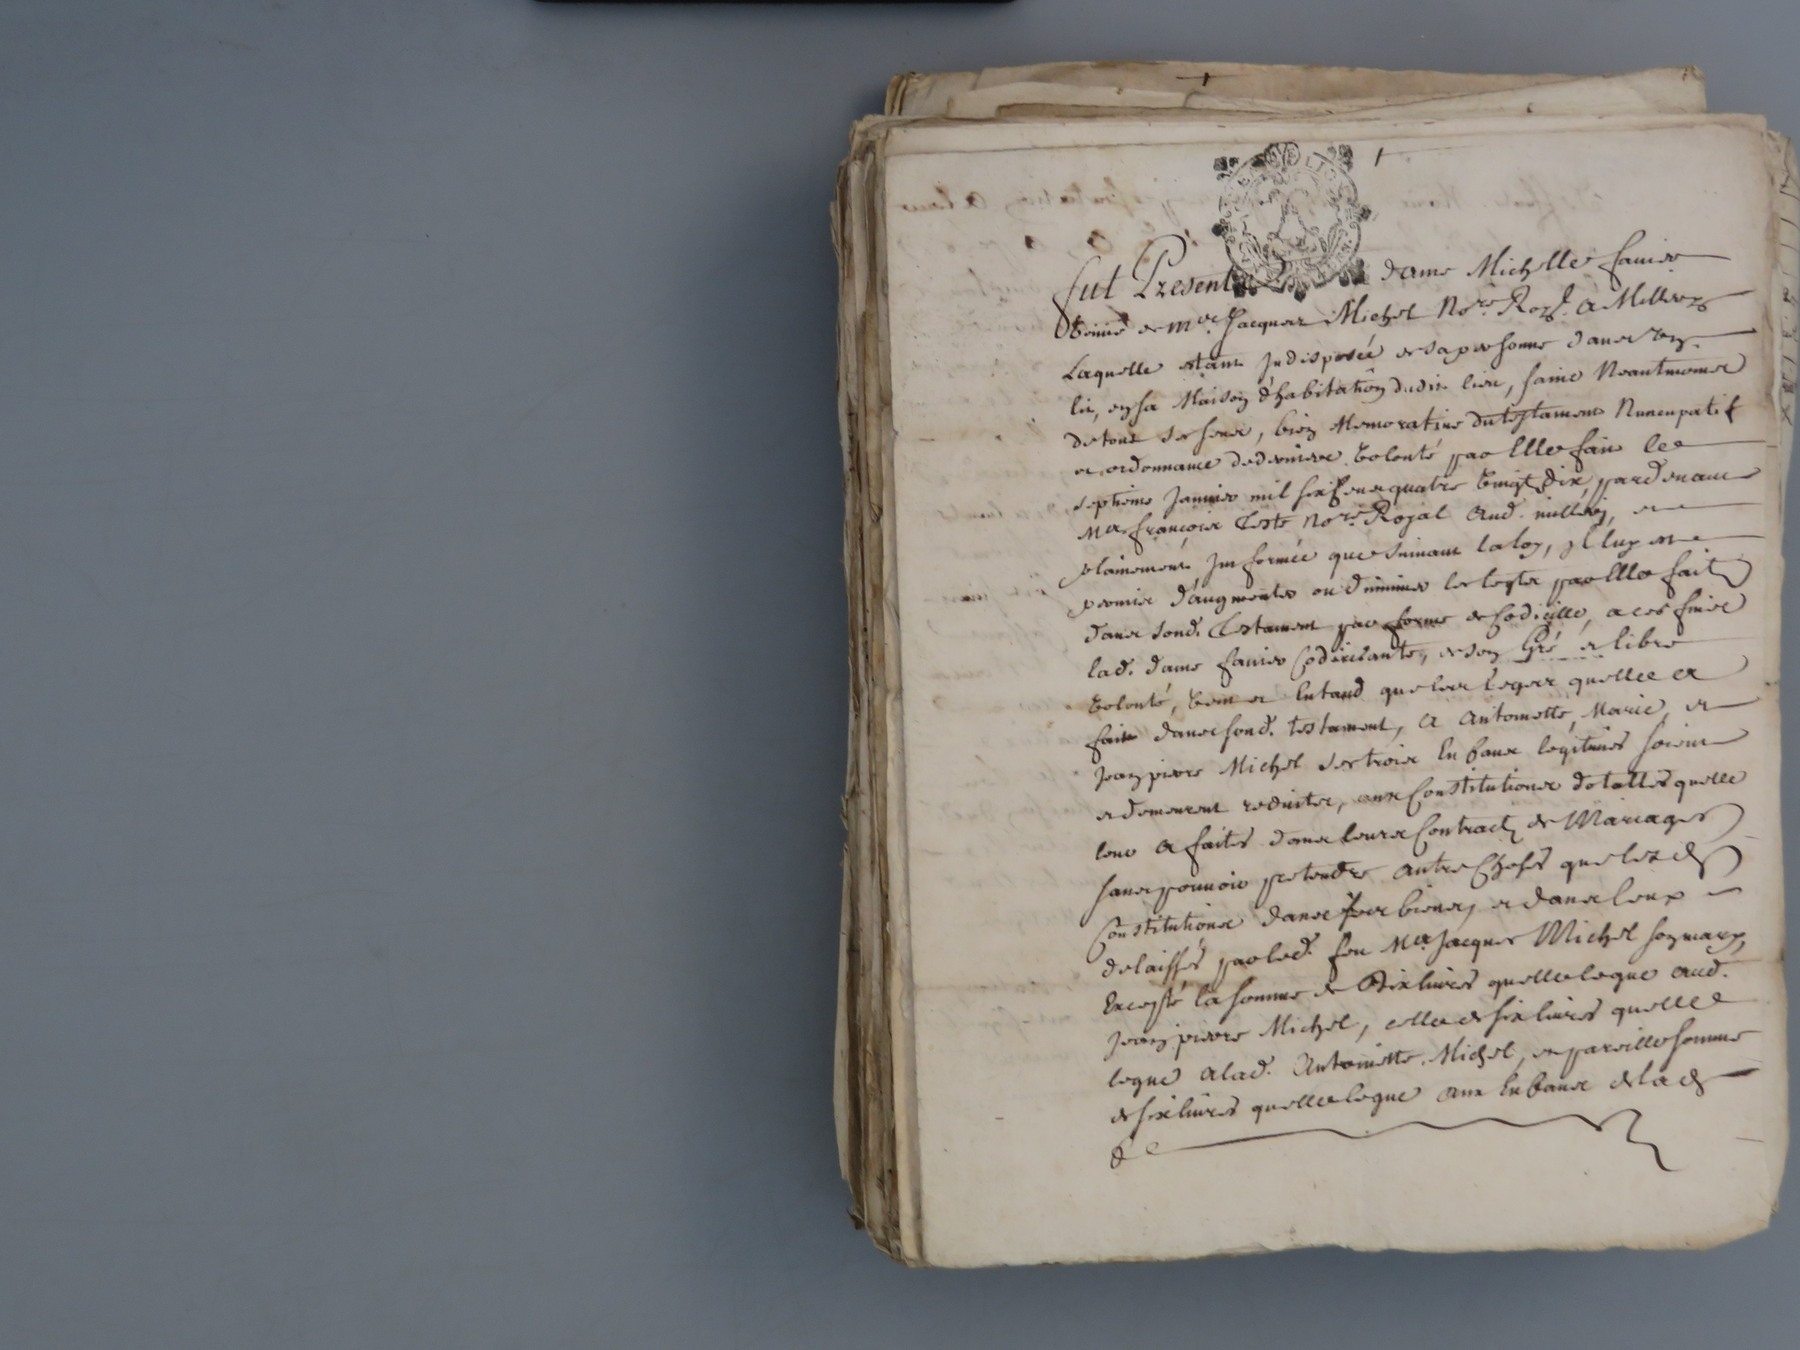 fut Presente dame Michelle favier
veuve de Mre Jacques Michel Nore Roy. a Millery
Laquelle estant Indisposée de sa personne dans son
lit, en sa Maison d'habitation dudit lieu, saine Neantmoines
de tous ses sens, bien Memorative du testament Nuncupatif
et ordonnance de derniere volonté par Elle fait le
septieme Janvier mil six cens quatre vingt dix, pardevant
Me françois Teste Nore Royal aud. millery, et
plainement Informée que suivant la loy, Il luy est
permis d'augmenter ou diminuer les legtz par Elle faitz
dans sond. Testament par forme de Codicille, a ces fins
lad. dame favier Codicisante, de son Gré et libre
volonté, veut et Entand que les legaz quelle a
fait dans sond. testament, a Antoinette, Marie, et
Jean pierre Michel ses trois Enfans legitimes soient
et demeurent reduites, aux Constitutions dotalles quelle
leur a faites dans leurs Contractz de Mariages
sans pouvoir pretendre autre Choses que lesd
Constitutions dans ses biens, et dans ceux
delaissés par led. feu Me Jacques Michel son mary,
Excepté la somme de dix livres quelle legue aud.
Jean pierre Michel, celle de six livres quelle
legue a lad. Antoinette Michel, et pareille somme
de six livres quelle legue aux Enfans de lad